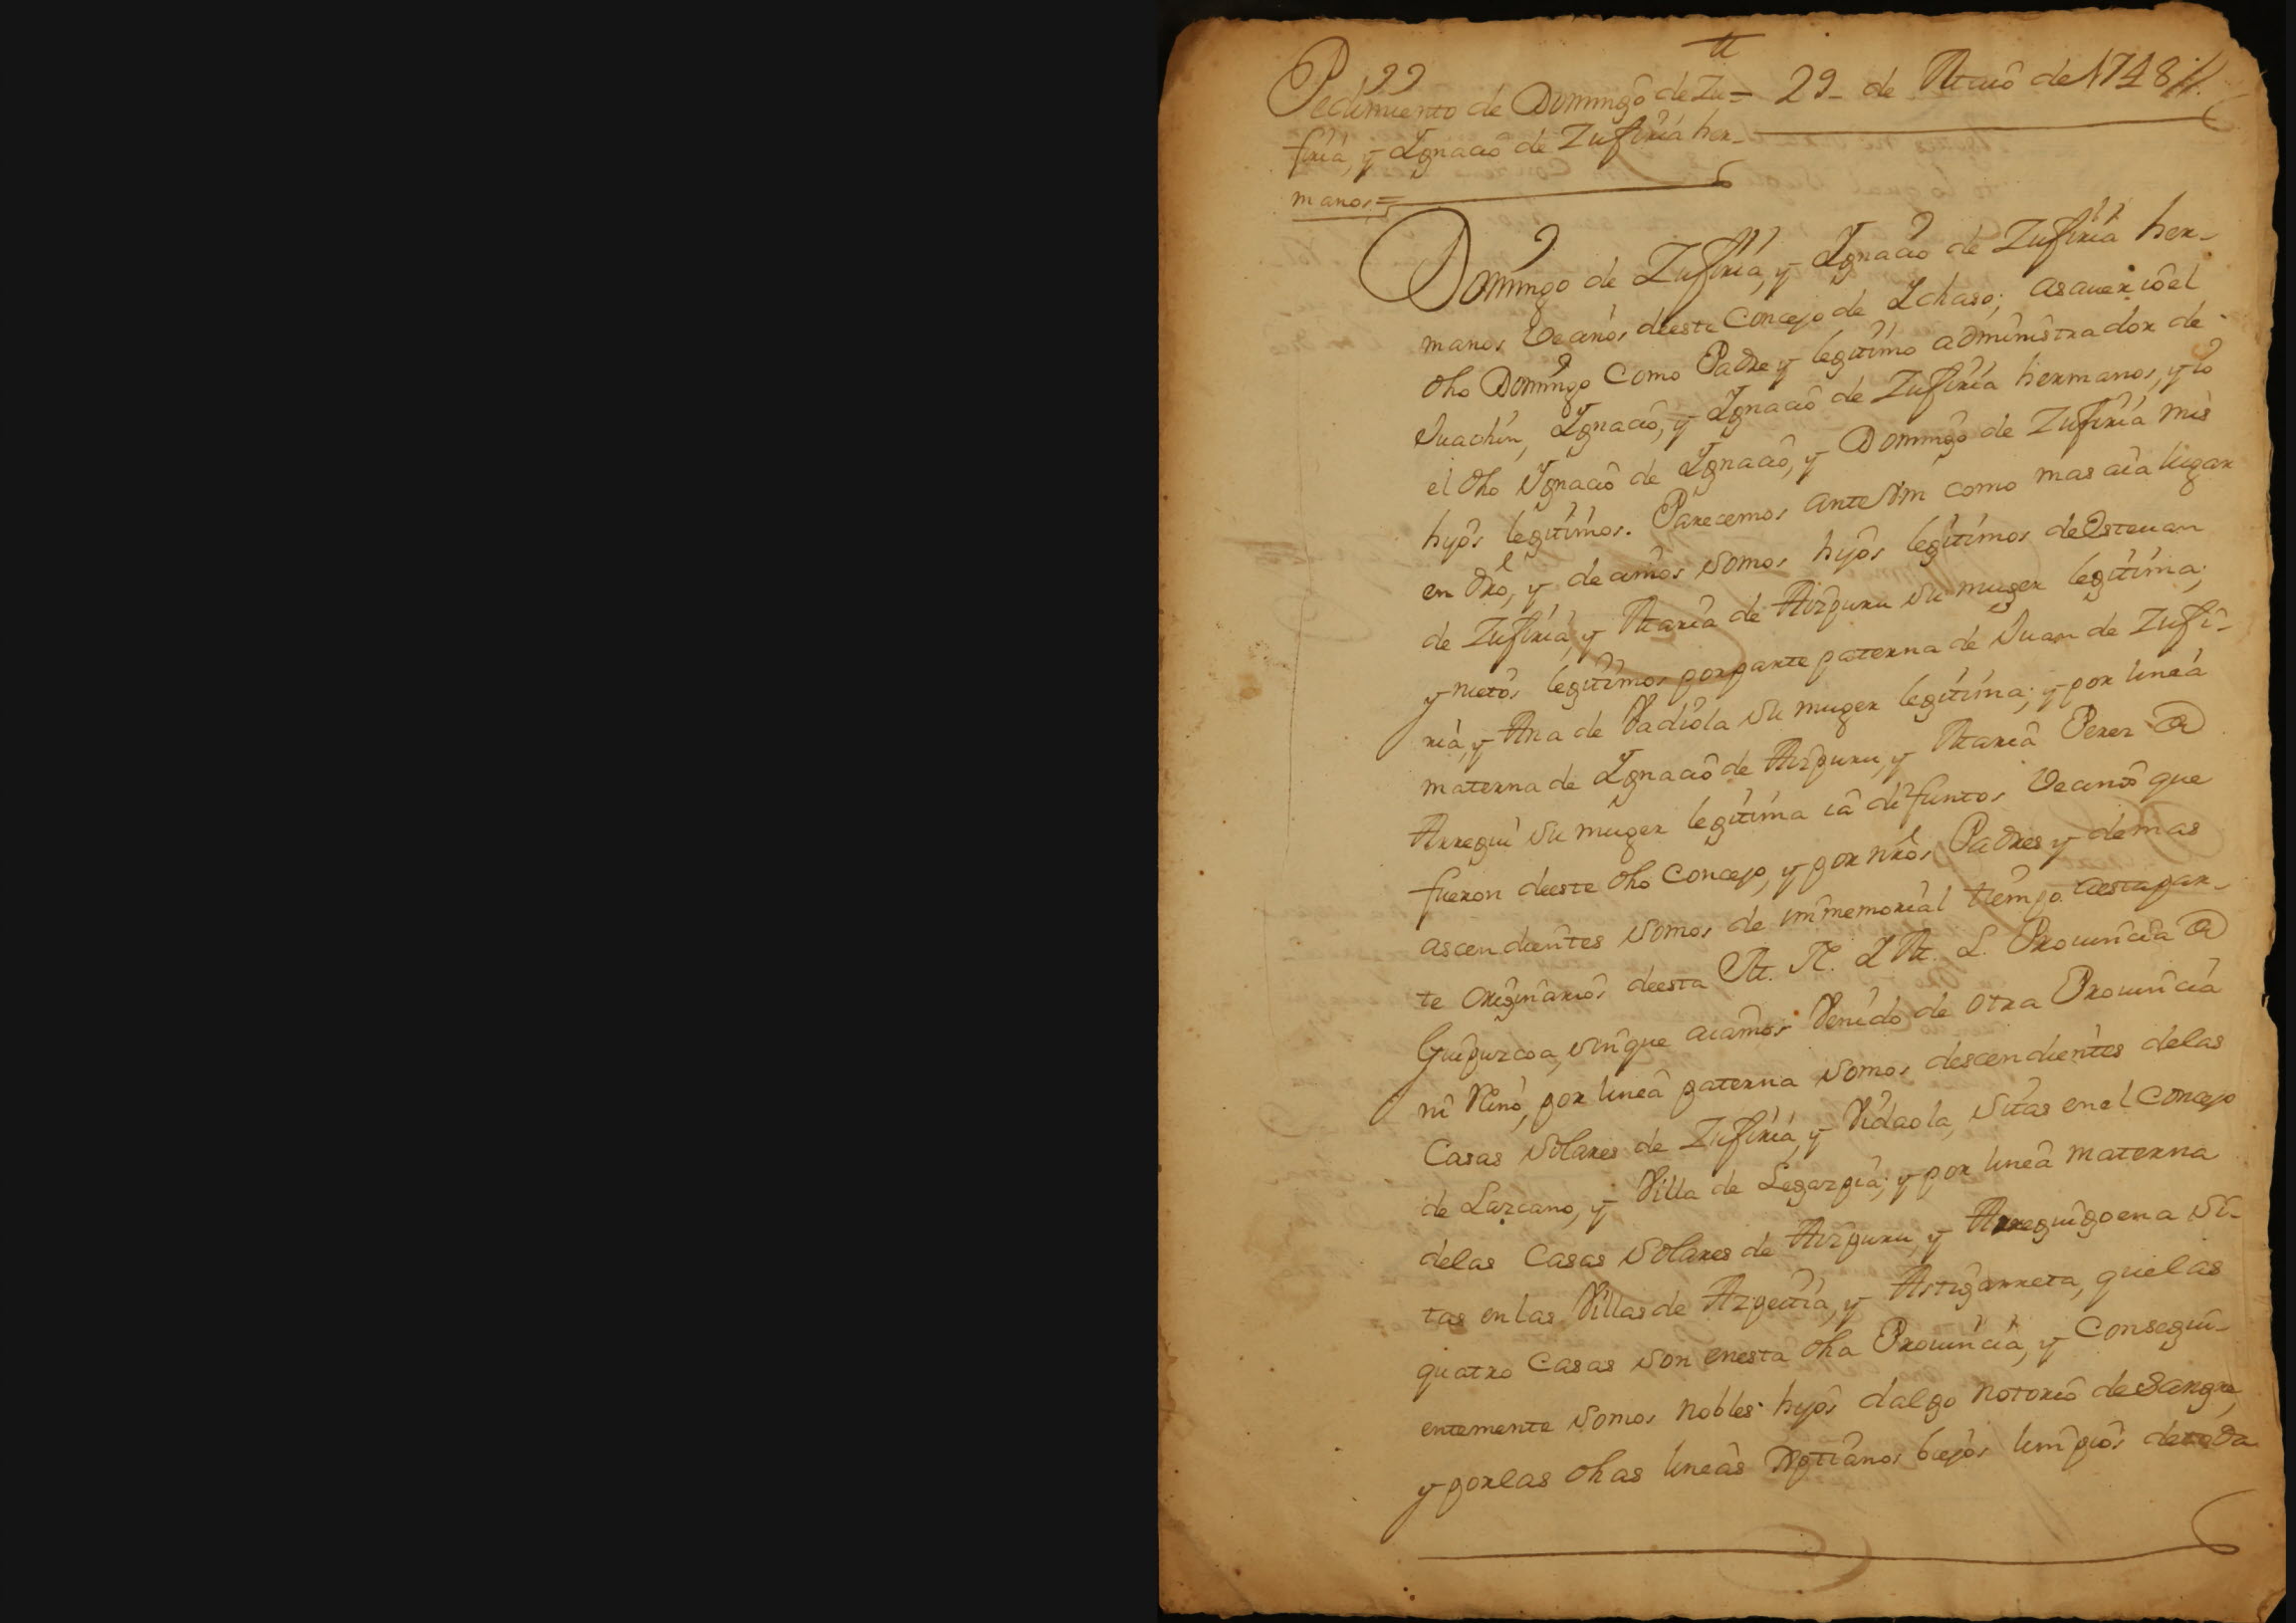 Pedimiento de Domingo de Zu= 29 de Maio de 1748 //.
firia, y Ygnacio de Zufiria her-
manos =
Domingo de Zufiria, y Ygnacio de Zufiria her-
manos Vecinos deeste Concejo de Ychaso; asauer io el
dho Domingo Como Padre y legitimo administrador de
Juachin, Ygnacio, y Ygnacio de Zufiria hermanos, y io
el dho Ygnacio de Ygnacio, y Domingo de Zufiria mis
hijos legitimos. Parecemos ante Vm como mas aia lugar
en dro, y decimos somos hijos legitimos de Esteuan
de Zufiria, y Maria de Aizpuru su muger legitima;
y nietos legitimos por parte paterna de Juan de Zufi-
ria, y Ana de Vadiola su muger legitima; y por linea
materna de Ygnacio de Aizpuru, y Maria Perez @
Arregui su muger legitima ia difuntos Vecinos que
fueron deeste dho Concejo, y por nros Padres y demas
ascendientes somos de immemorial tiempo aesta par-
te originarios deesta M. N. Y M. L. Prouincia @
Guipuzcoa, sin que aiamos Venido de otra Prouincia
ni Reino, por linea paterna somos descendientes delas
Casas Solares de Zufiria, y Vidaola, sitas en el Concejo
de Lazcano, y Villa de Legazpia; y por linea materna
delas Casas Solares de Aizpuru, y Arreguigoena si-
tas en las Villas de Azpeitia, y Astigarreta, que las
quatro Casas son enesta dha Prouincia, y Consegui-
entemente somos nobles hijos dalgo notorio de Sangre,
y por las dhas lineas Xptianos biejos limpios de toda